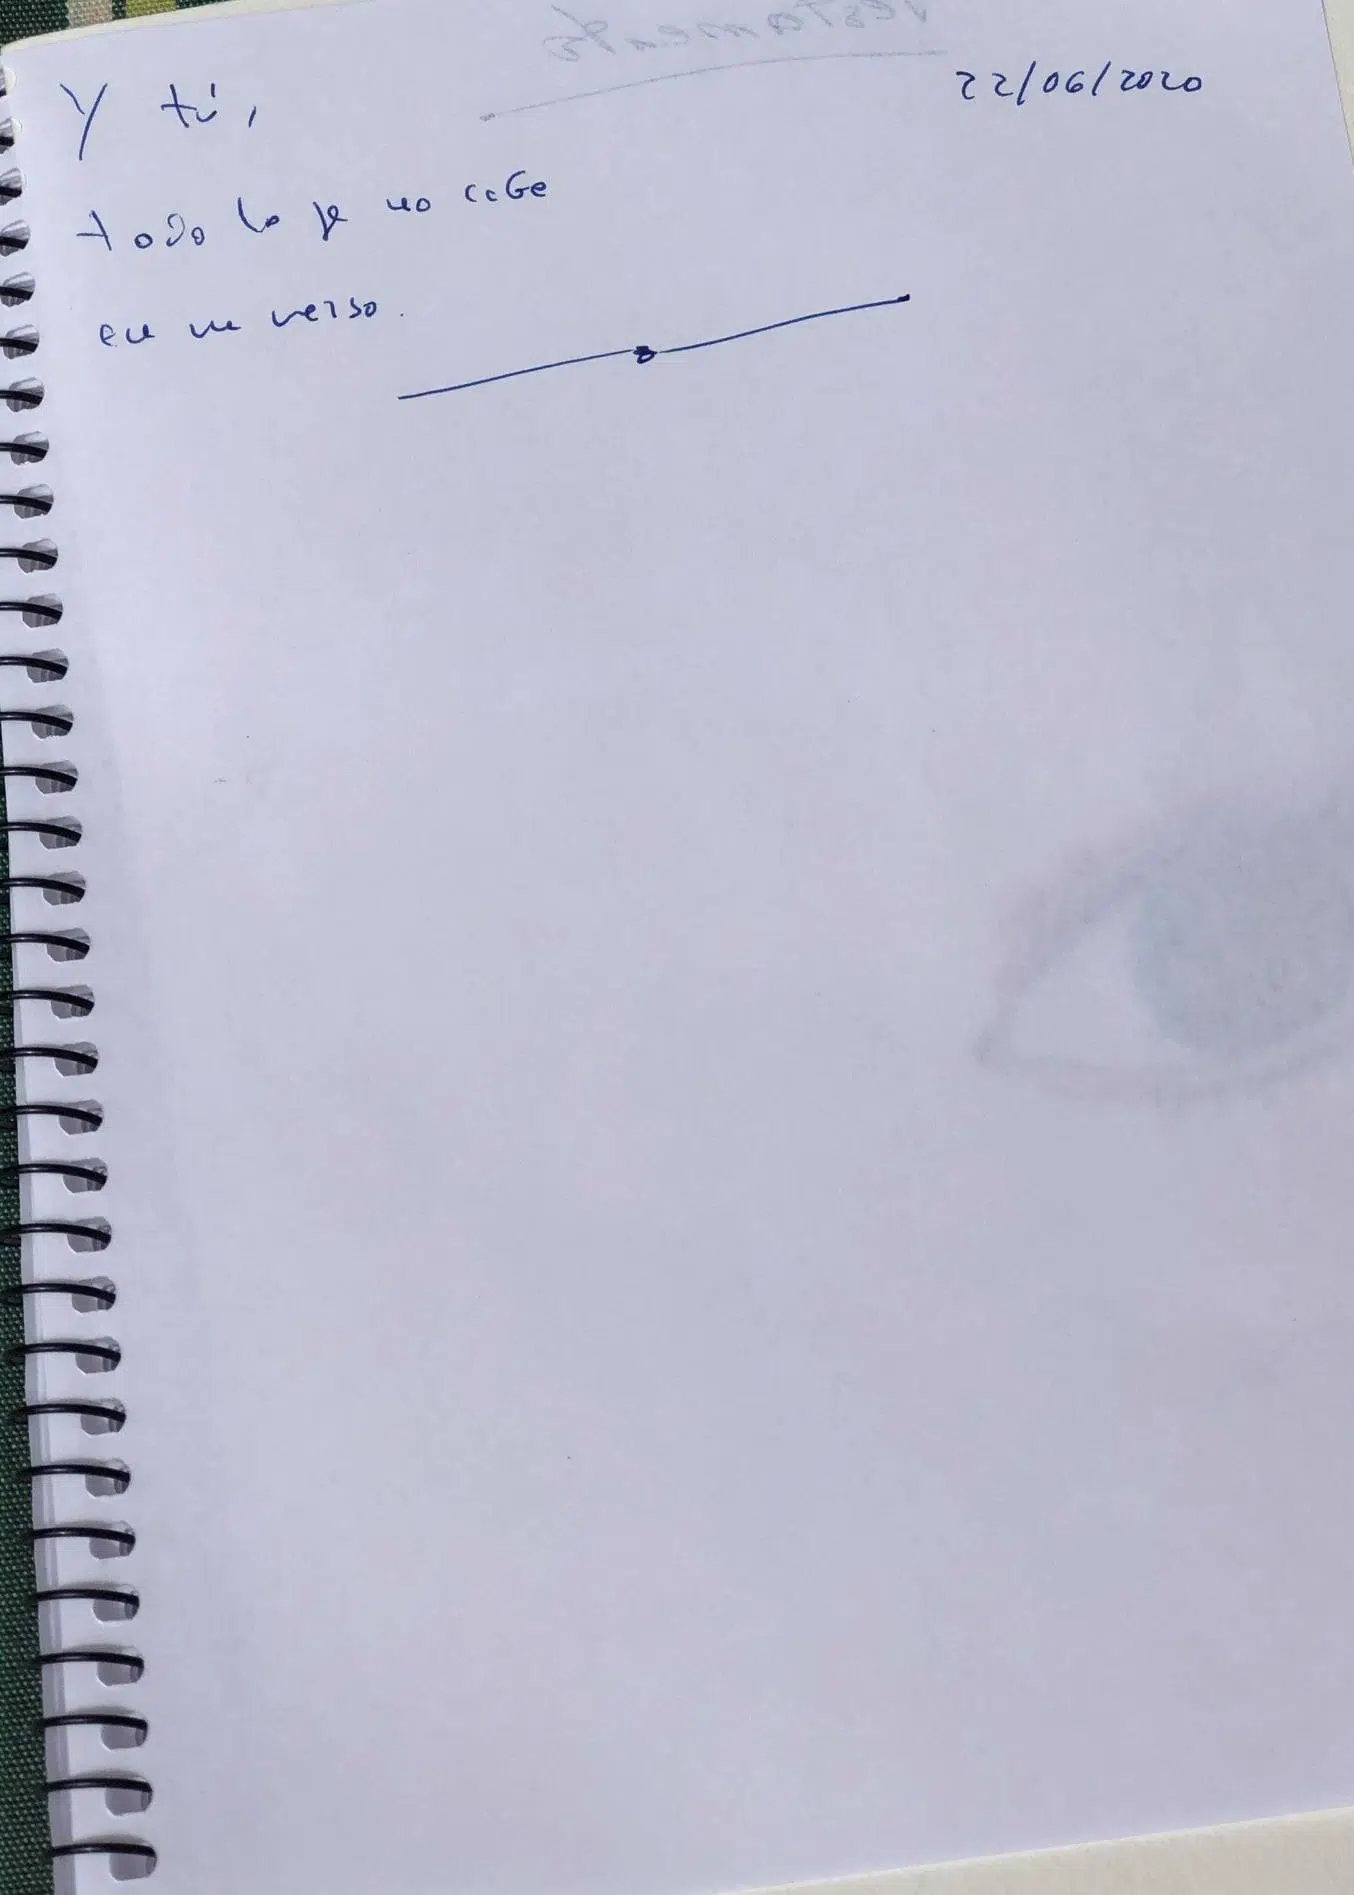 22/06/2020
Y tú,
todo lo q no cabe
en un verso.